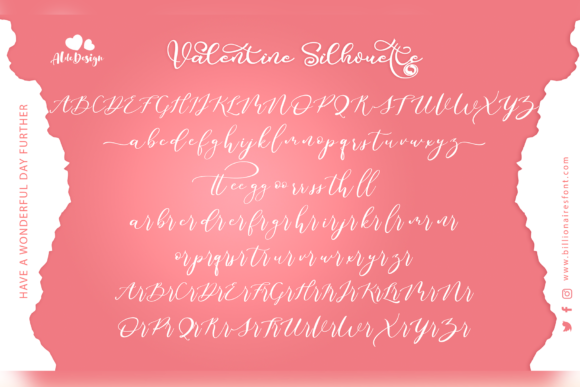 AldeDesign
Valentine Silhouette
ABCDEFGHIJKLMNOPQRSTUVWXYZ
abcdefghijklmnopqrstuvwxyz
tt ee gg oo rr ss th ll
ar br cr dr er fr gr hr ir jr kr lr mr nr
or pr qr sr tr ur vr wr xr yr zr
Ar Br Cr Dr Er Fr Gr Hr Ir Jr Kr Lr Mr Nr
Or Pr Qr Sr Tr Ur Vr Wr Xr Yr Zr
HAVE A WONDERFUL DAY FURTHER
www.billionairesfont.com